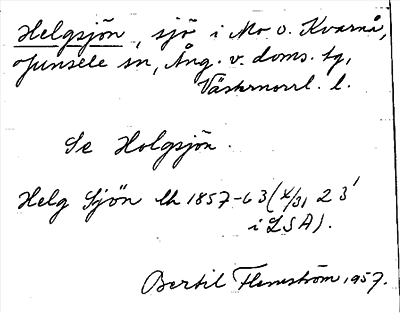 Helgsjön, sjö i Mo o. Kvarnå,
Junsele sn, Ång. v. doms. tg,
Västernorrl. l.
Se Holgsjön.
Helg Sjön Lk 1857-63 (4/31, 23'
i LSA).
Bertil Flemström 1957.